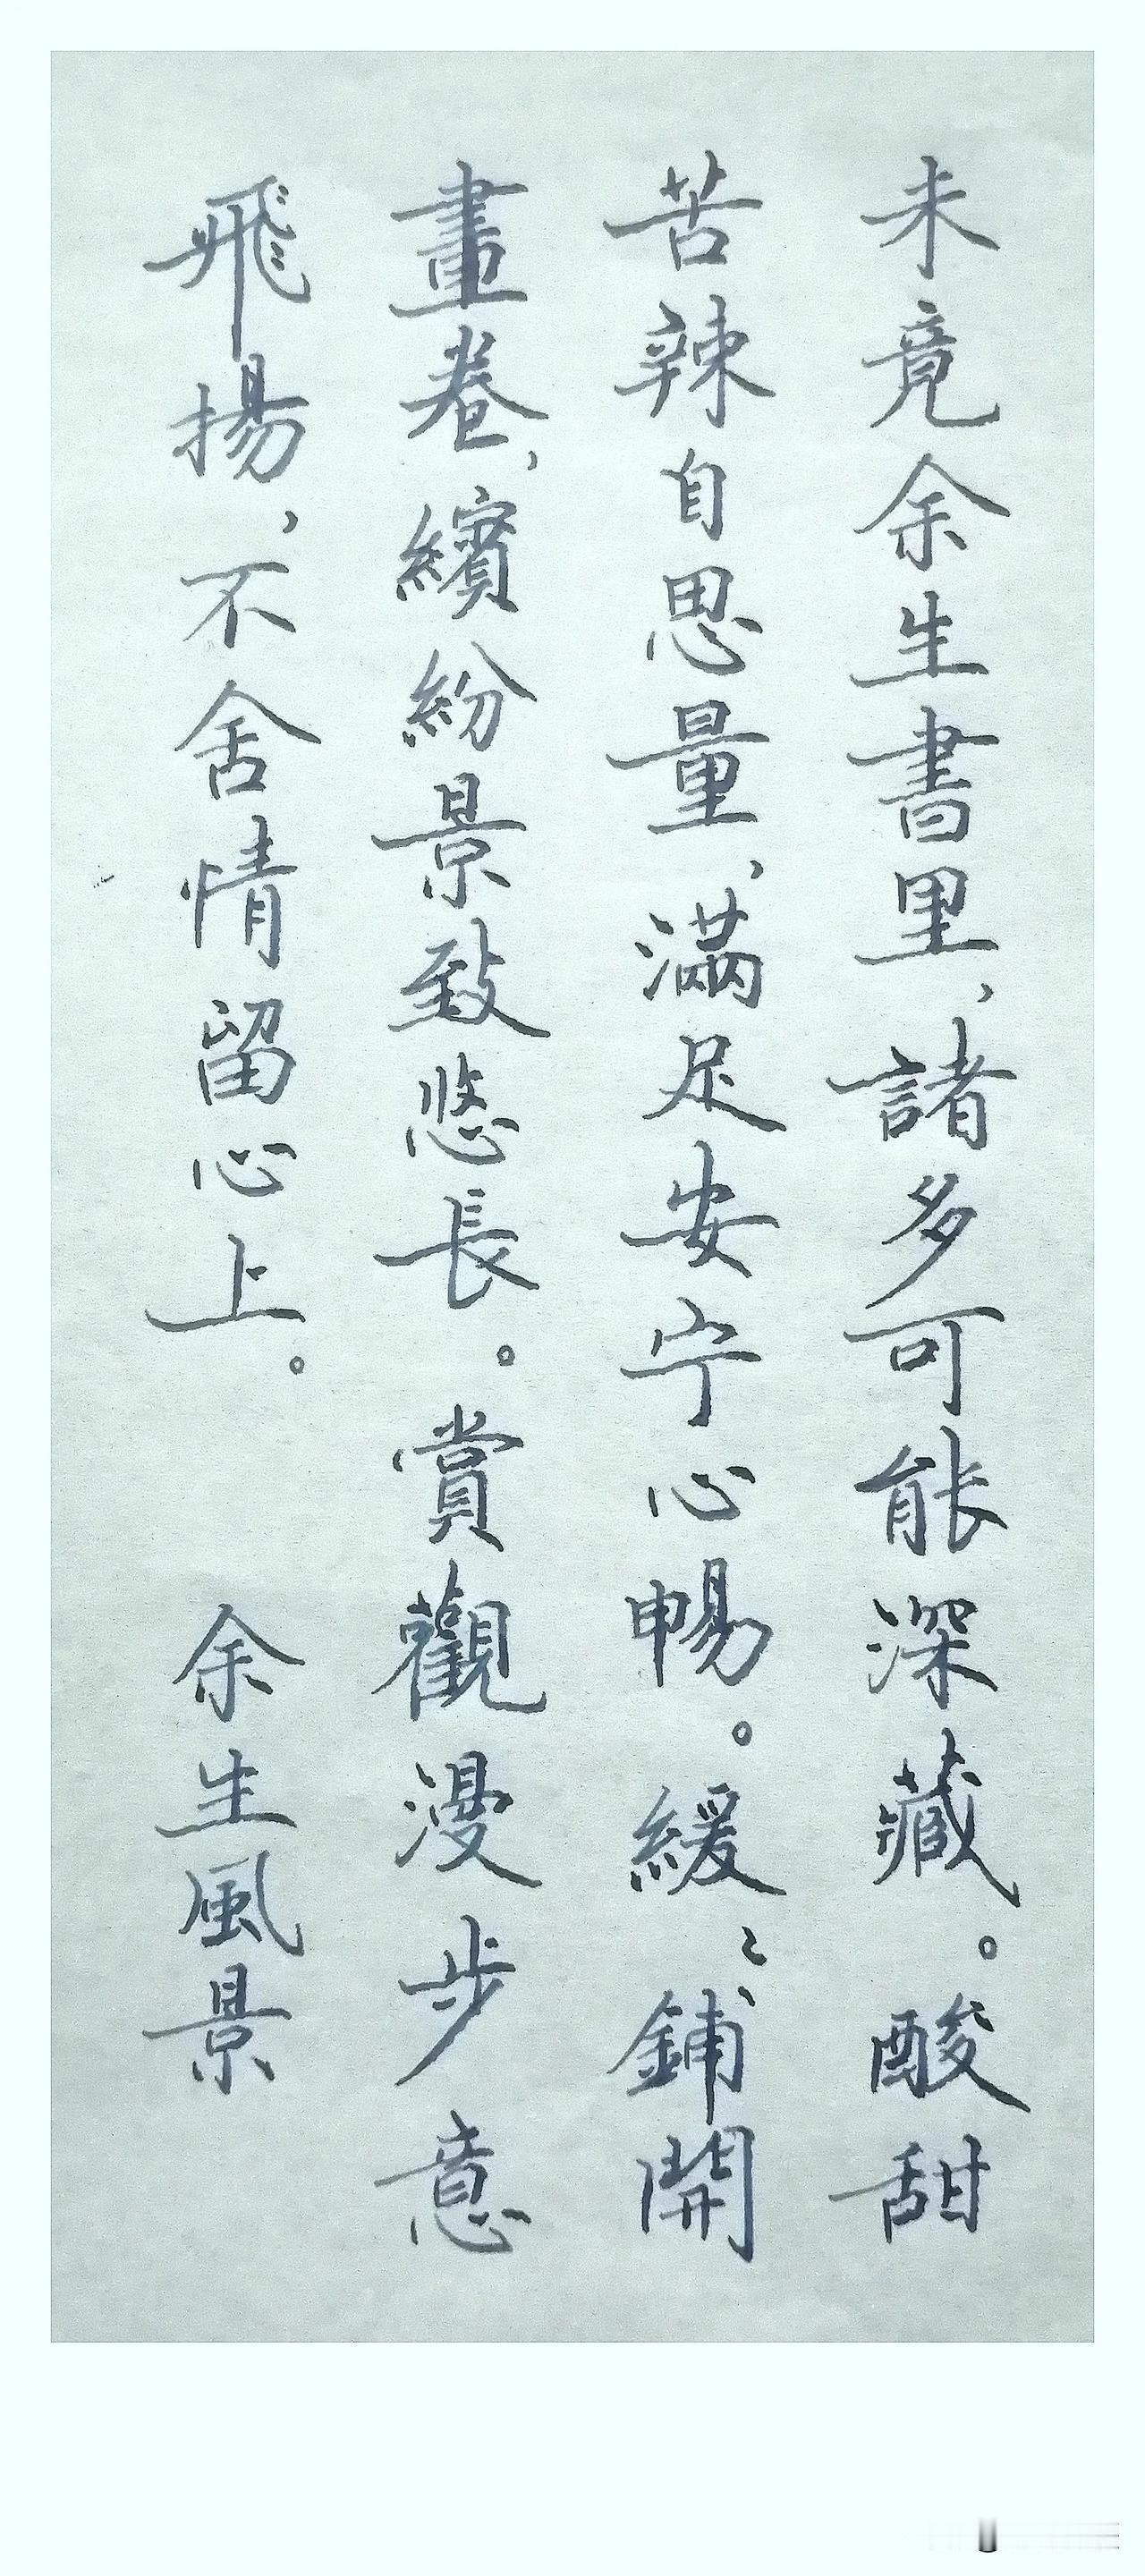 未竟余生書里，諸多可能深藏。酸甜
苦辣自思量，滿足安宁心暢。緩〻鋪開
畫卷，繽紛景致悠長。賞觀漫步意
飛揚，不舍情留心上。 余生風景